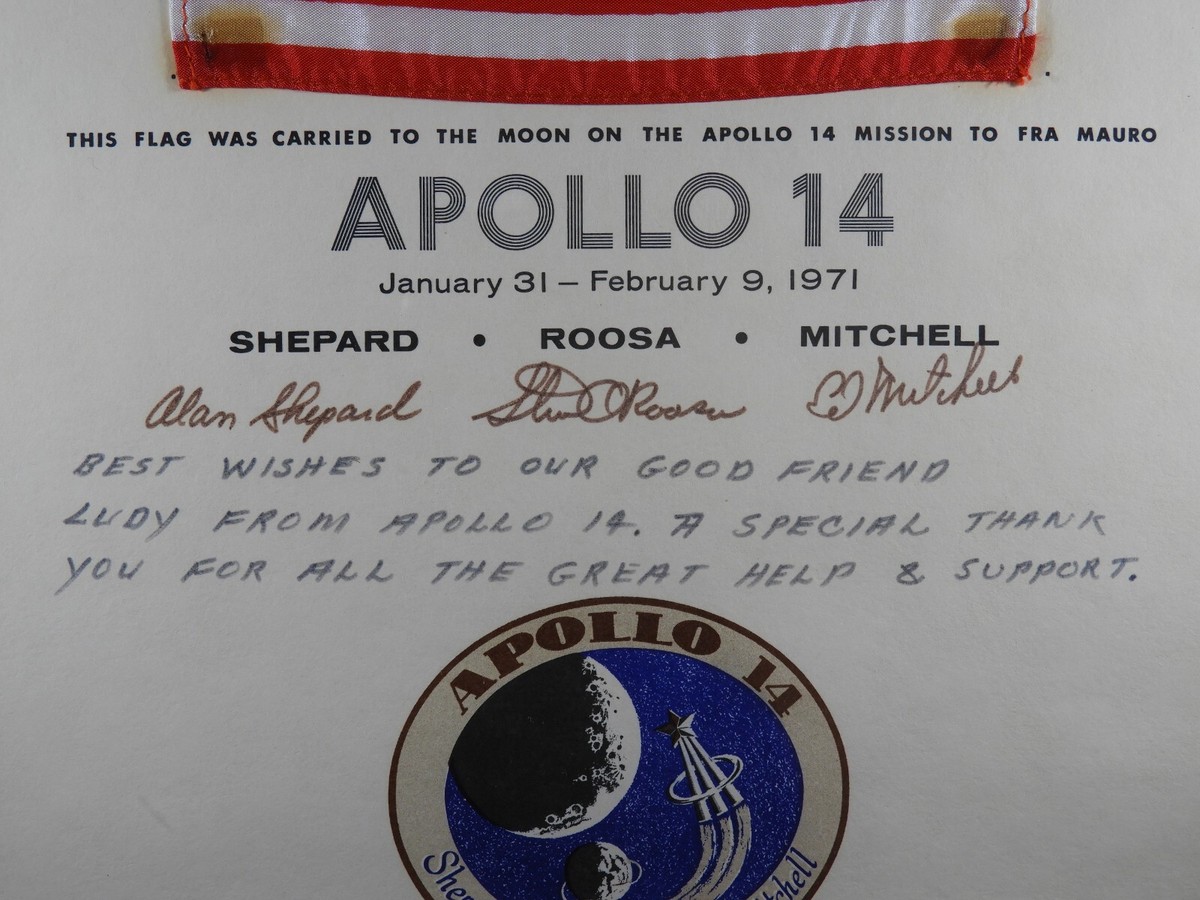 THIS FLAG WAS CARRIED TO THE MOON ON THE APOLLO 14 MISSION TO FRA MAURO
APOLLO 14
January 31 – February 9, 1971
SHEPARD • ROOSA • MITCHELL
Alan Shepard Stuart Roosa ED Mitchell
BEST WISHES TO OUR GOOD FRIEND
LUDY FROM APOLLO 14. A SPECIAL THANK
YOU FOR ALL THE GREAT HELP & SUPPORT.
APOLLO 14